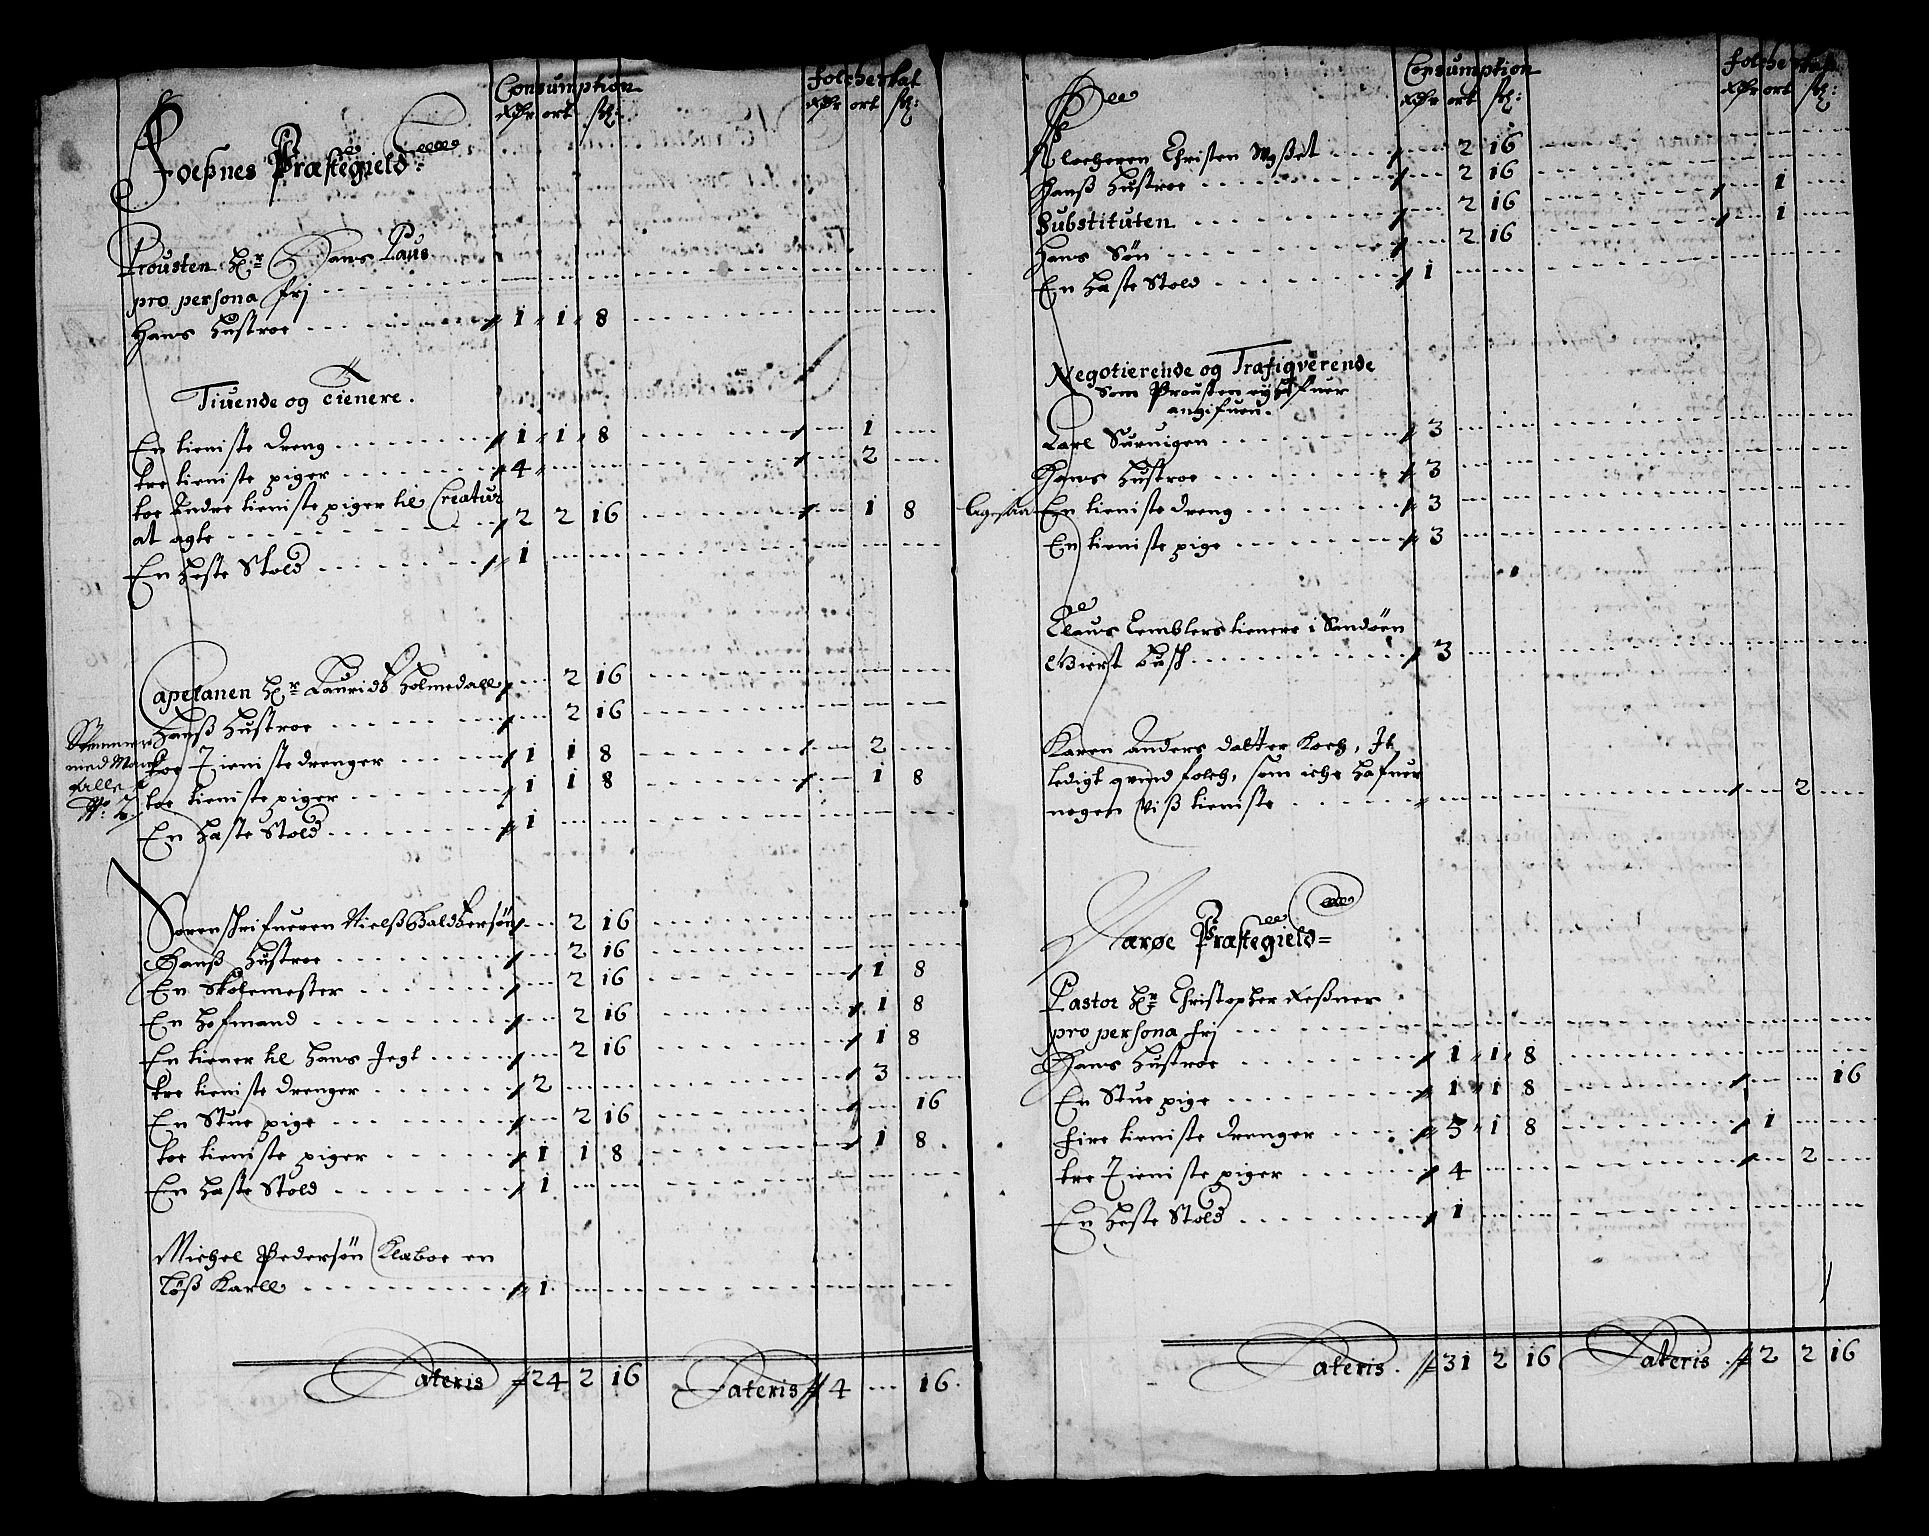 Consumption folcheskat
Rdr ort sk: Rdr ort sk:
Foesnes Præstegield
Prousten Hr Hans Paus
pro persona frj
Hans hustroe 1 1 8
Tiuende og tienere.
En tieniste dreng 1 1 8 1
tre tieniste piger 4 2
toe Andre tieniste piger til Creatur
at agte 2 2 16 1 8
En heste Stold 1
Capelanen Hr Laurids Holmedall 2 16
Hanß hustroe 2 16
toe Tieniste drenger 1 1 8 2
toe tieniste piger 1 1 8 1 8
En hæste Stold 1
Sorenschrifueren Nielß Baldtzersøn 2 16
Hanß hustroe 2 16
En Skolemester 2 16 1 8
En hofmand 2 16 1 8
En tiener til hans Jegt 2 16 1 8
tre tieniste drenger 2 3
En Stue pige 2 16 16
toe tieniste piger 1 1 8 1 8
En hæste Stold 1
Michel Pedersøn Klæboe en
løß Karll 1
Lateris 24 2 16 Lateris 4 16
Consumption folcheskat
Rdr ort sk: Rdr ort sk:
Klocheren Christen 2 16
Hanß hustroe 2 16 1
Substituten 2 16 1
Hans Søn 2 16
En hæste Stold 1
Negotierende og Trafiqverende
Som Prousten
angifuen.
Carl 3
Hans hustroe 3
En tieniste dreng 3
En tieniste pige 3
Claus tienere i Sandøen
3
Karen Anders datter Koch, It
ledigt qvindfolch, som iche hafuer
nogen viß tieniste 2
Nærøe Præstegield
Pastor Hr Christopher
pro persona frj
Hans hustroe 1 1 8
En Stue pige 1 1 8 16
fire tieniste drenger 5 1 8 1
tre Tieniste piger 4 2
En heste Stold 1
Lateris. 31 2 16 Lateris. 2 2 16